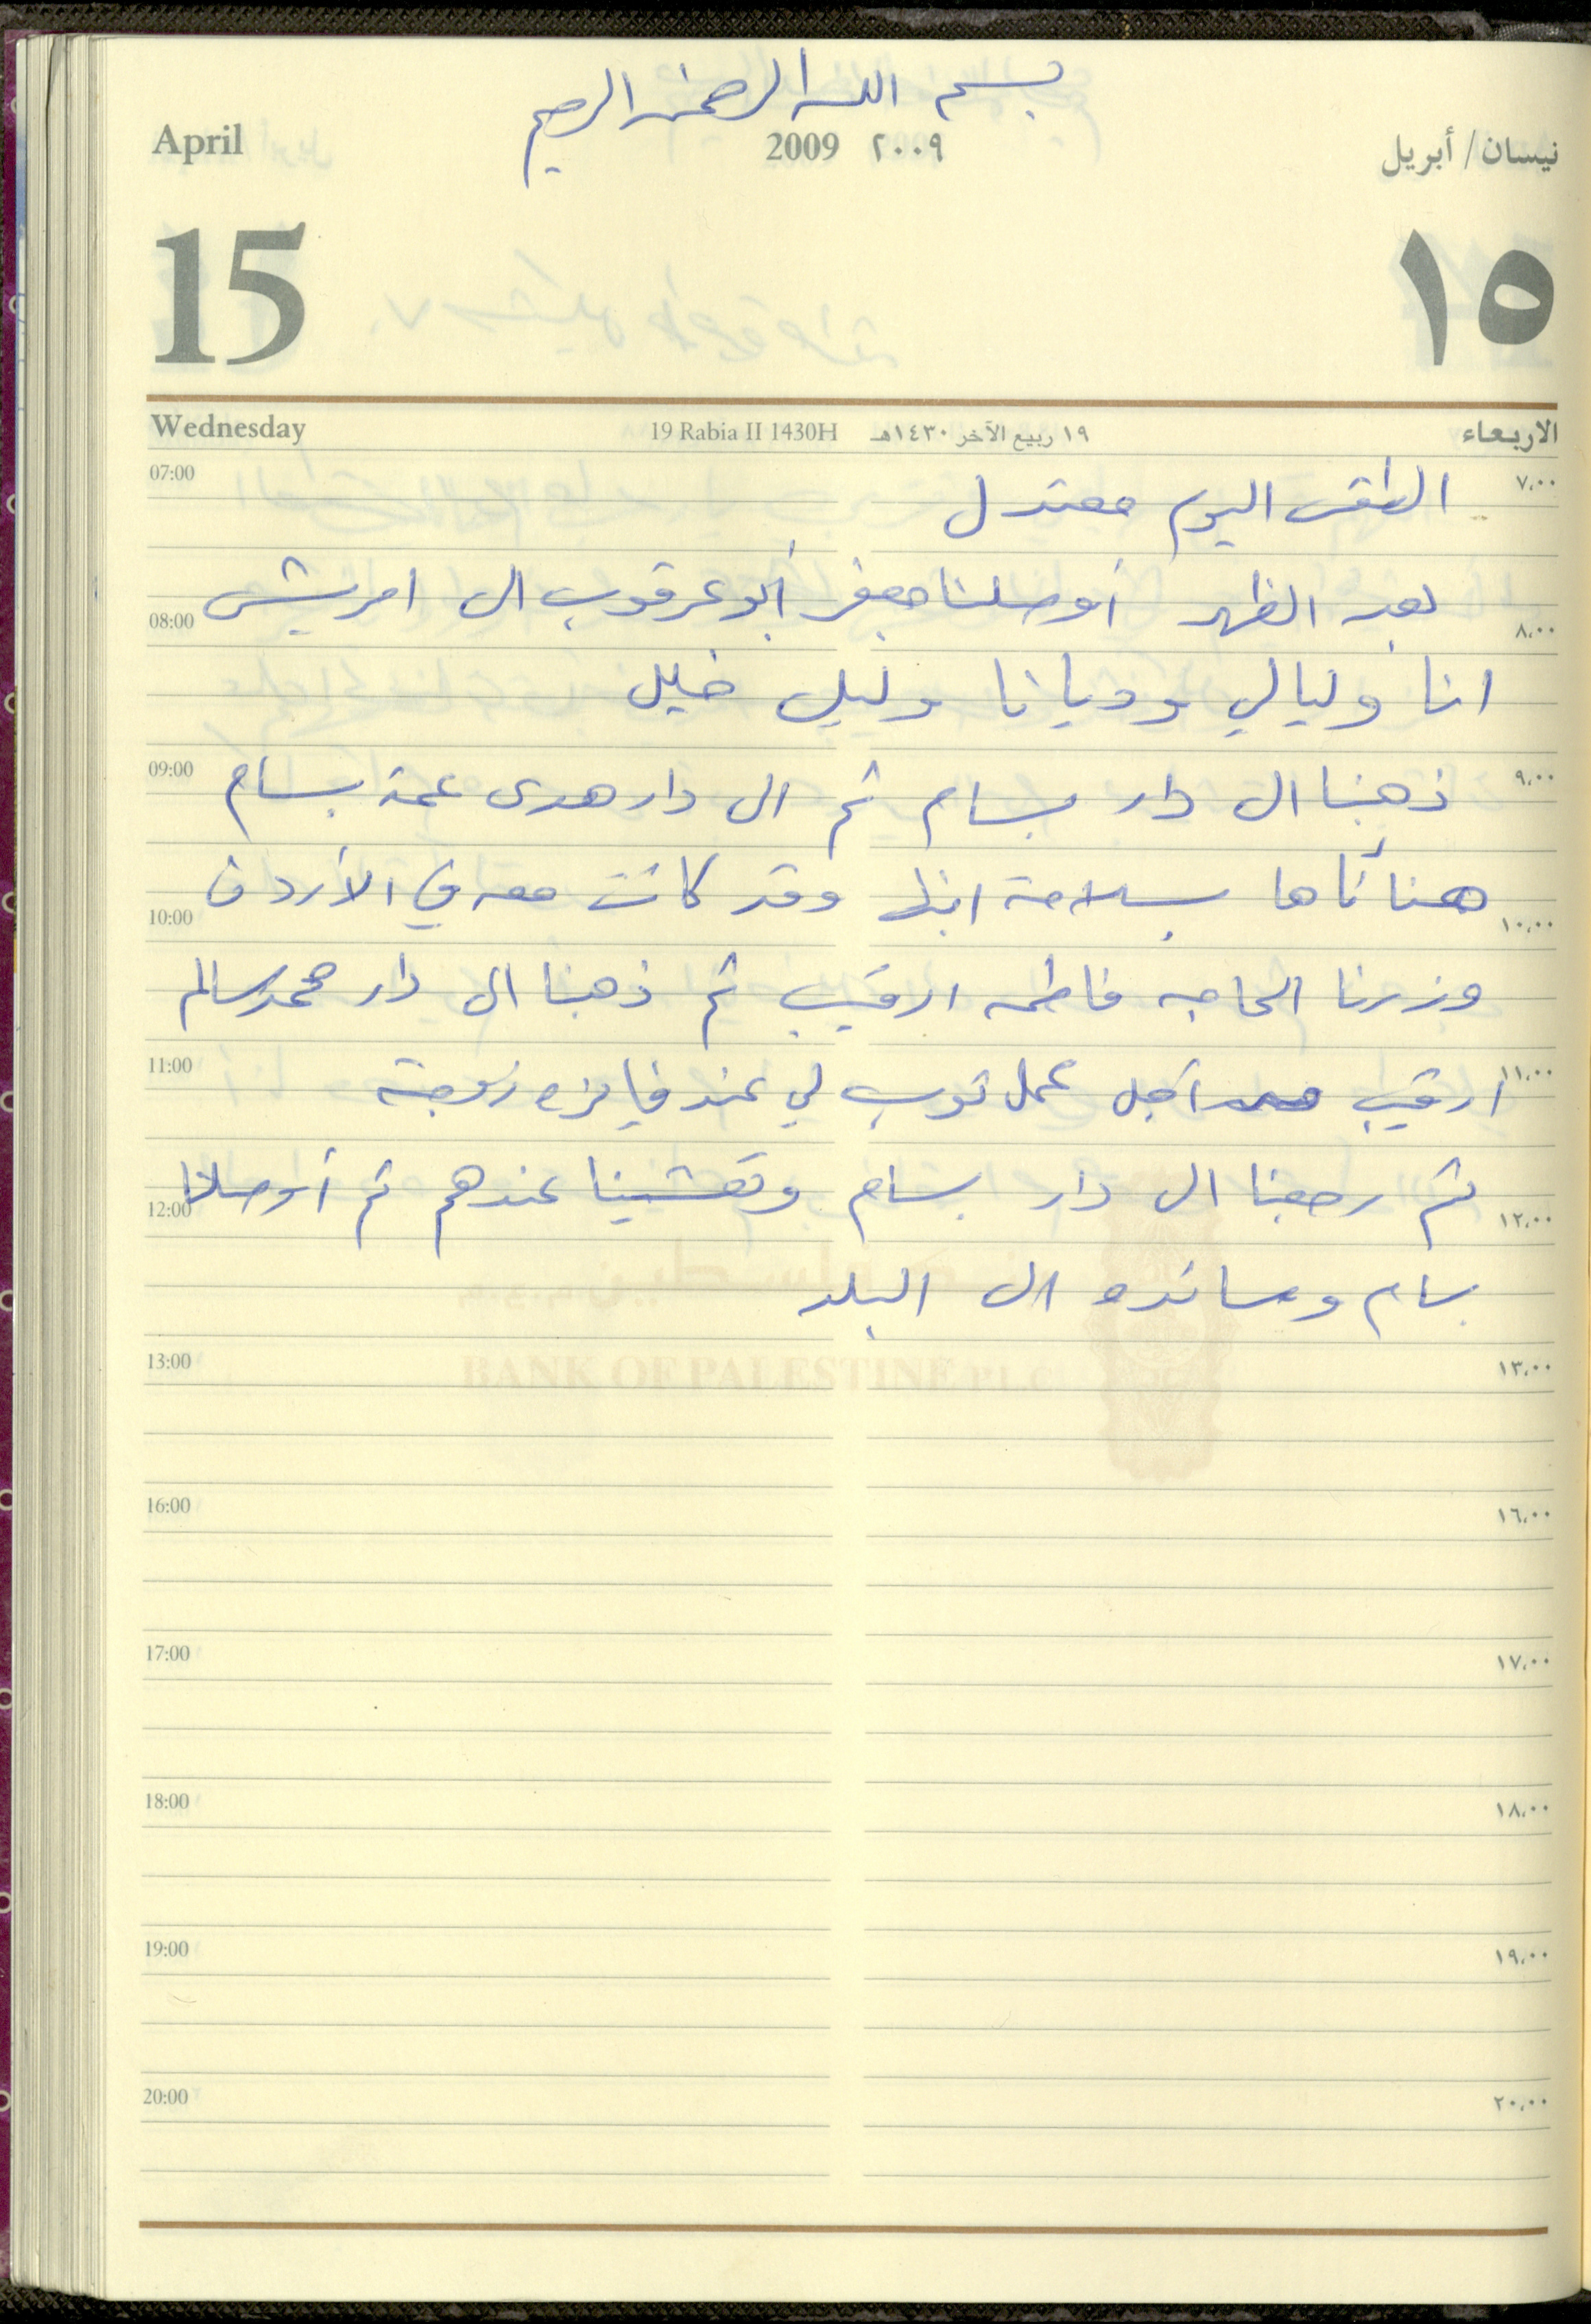 بسم الله الرحمن الرحيم
April 2009 ٢٠٠٩ نيسان/ أبريل
15 ١٥
Wednesday 19 Rabia II 1430H ١٩ ربيع الآخر ١٤٣٠هـ الاربعاء
07:00 ٧،٠٠
الطقس اليوم معتدل
بعد الظهر أوصلنا جعفر أبو عرقوب الى امريش
08:00 ٨،٠٠
انا وليالي وديانا وليلى خليل
09:00 ٩،٠٠
ذهبنا الى دار بسام ثم الى دار هدى عمة بسام
هنأناها بسلامة ابنها وقد كانت معه في الأردن
10:00 ١٠،٠٠
وزرنا الحاجه فاطمه ارقيب ثم ذهبنا الى دار محمد سالم
11:00 ١١،٠٠
ارقيب اجل عمل ثوب لي عند فايزه زوجته
ثم رجعنا الى دار بسام وتعشينا عندهم ثم أوصلنا
12:00 ١٢،٠٠
بسام وسانده الى البلد
BANK OF PALESTINE P.L.C
13:00 ١٣،٠٠
16:00 ١٦،٠٠
17:00 ١٧،٠٠
18:00 ١٨،٠٠
19:00 ١٩،٠٠
20:00 ٢٠،٠٠